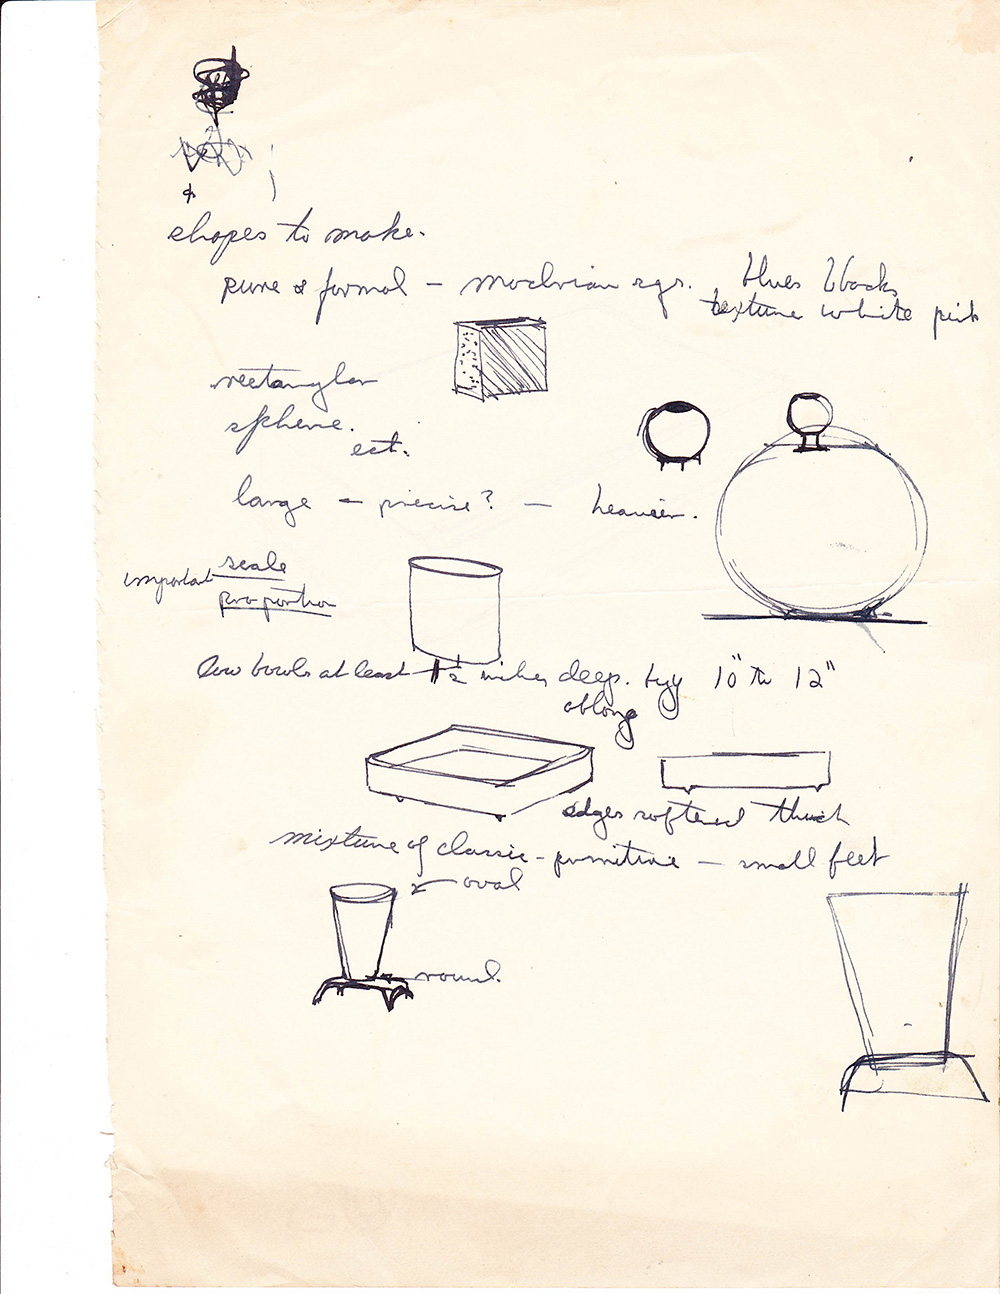 &
shopes to make.
pure & formal – mochrian sqs. blues blacks
texture white pink
rectangular
sphere.
ect.
large – precise? – heavier.
important scale
proportion
low bowls at least 1½ inches deep. try 10" to 12"
oblong
edges softened thick
mixture of classic – primitive – small feet
oval
round.